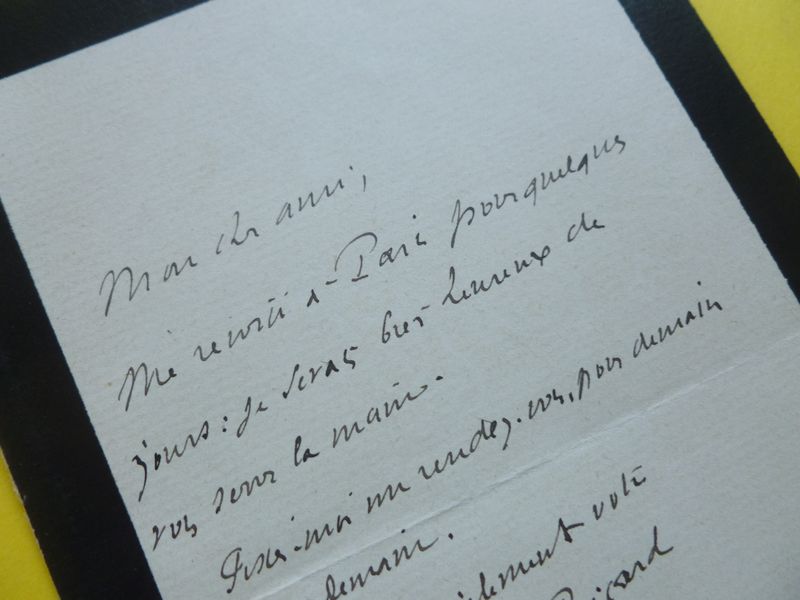 Mon cher ami,
Me revoici à Paris pour quelques
jours : je serais très heureux de
vous serrer la main.
Fixez-moi un rendez-vous, pour demain
demain.
votre